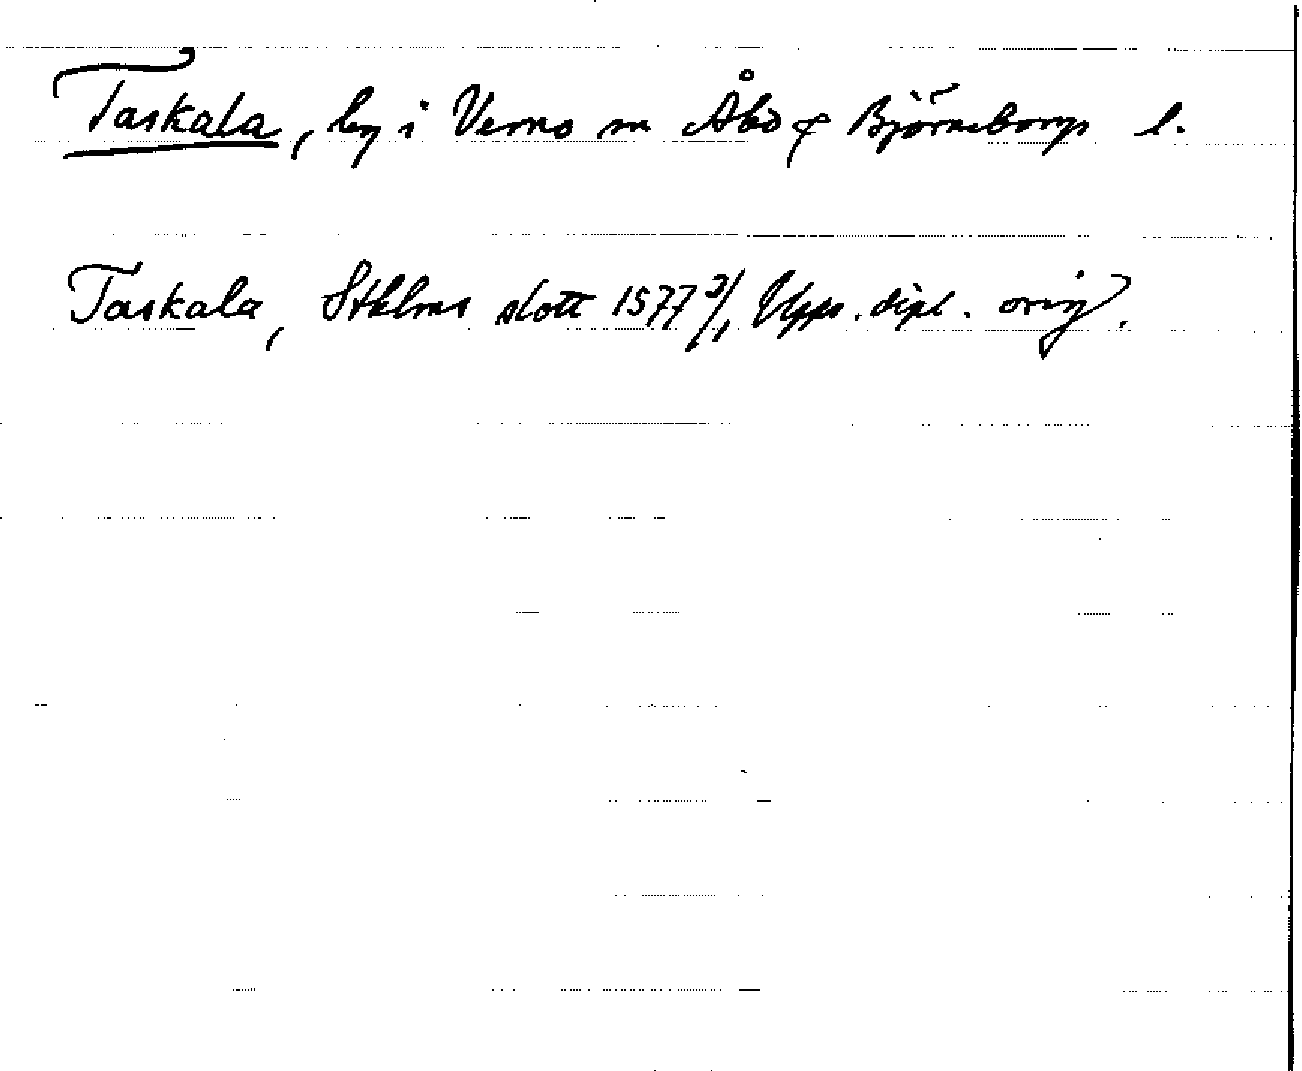 Taskala, by i Vemo sn Åbo & Björneborgs l.
Taskala, Sthlms slott 1577 3/1, Upps. dipl. orig.